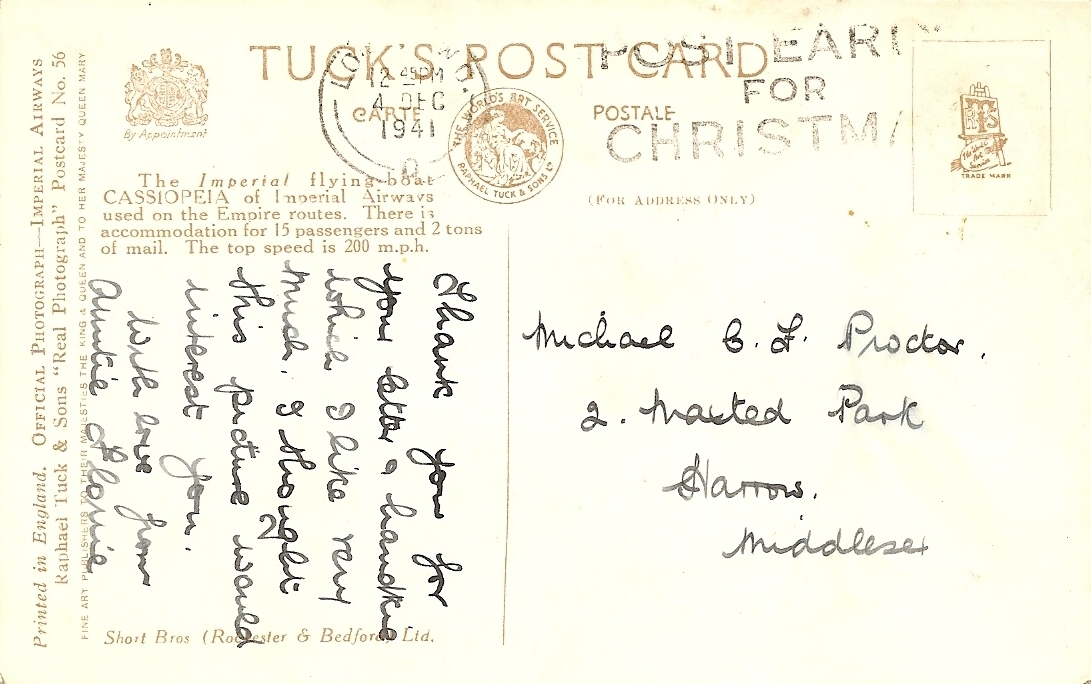 TUCK'S POST CARD
CARTE POSTALE
By Appointment
LONDON.
12 45 PM
4 DEC
1941
POST EARLY
FOR
CHRISTMA
THE WORLD'S ART SERVICE
RAPHAEL TUCK & SONS LTD
RTS
The World's
Art
Service
TRADE MARK
(FOR ADDRESS ONLY)
The Imperial flying-boat
CASSIOPEIA of Imperial Airways
used on the Empire routes. There is
accommodation for 15 passengers and 2 tons
of mail. The top speed is 200 m.p.h.
Thank you for
your letter & handkie
which I like very
much. I thought
this picture would
interest you.
With love from
Auntie Florrie
Michael C. F. Proctor.
2. Maxted Park
Harrow.
Middlesex
Short Bros (Rochester & Bedford) Ltd.
Printed in England. OFFICIAL PHOTOGRAPH—IMPERIAL AIRWAYS
Raphael Tuck & Sons "Real Photograph" Postcard No. 56
FINE ART PUBLISHERS TO THEIR MAJESTIES THE KING & QUEEN AND TO HER MAJESTY QUEEN MARY